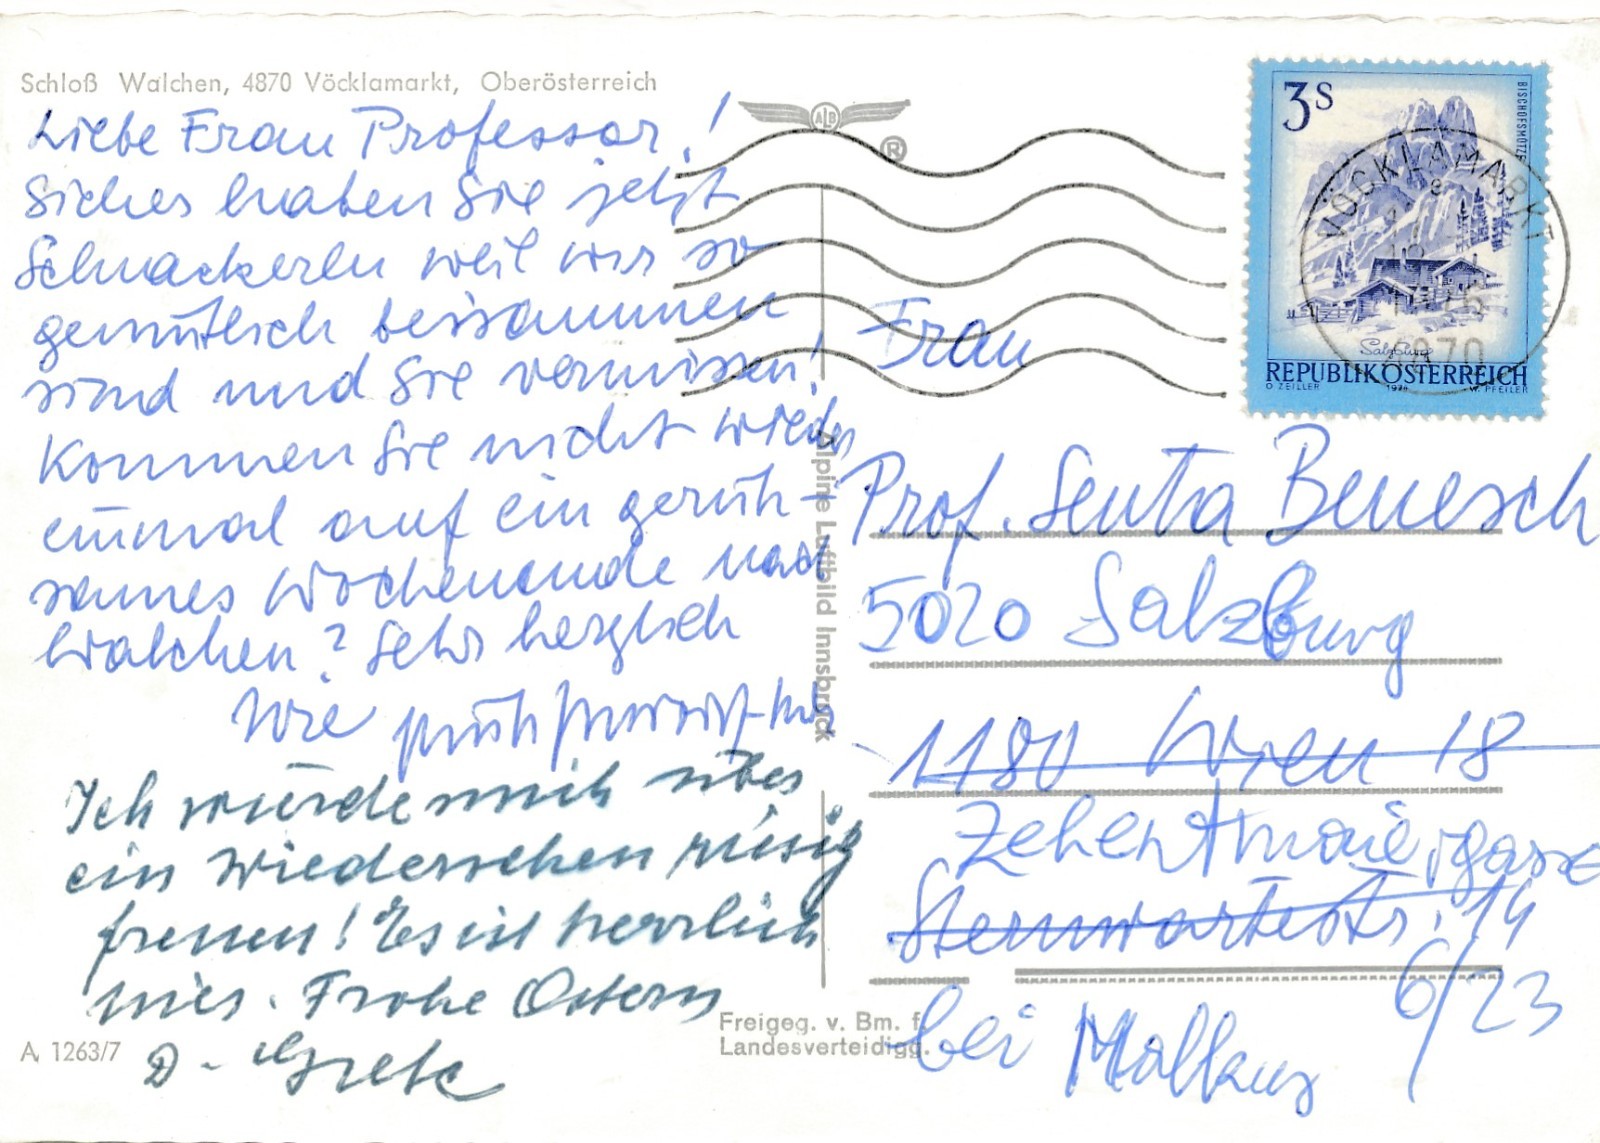 Schloß Walchen, 4870 Vöcklamarkt, Oberösterreich
Liebe Frau Professor!
Sicher haben Sie jetzt
Schnackerln weil wir so
gemütlich beisammen
sind und Sie vermissen!
Kommen Sie nicht wieder
einmal auf ein geruh-
sames Wochenende nach
Walchen? Sehr herzlich
Ihre
Ich würde mich über
ein Wiedersehen riesig
freuen! Es ist herrlich
hier. Frohe Ostern
D. Grete
A 1263/7
ALB
®
Alpine Luftbild Innsbruck
Freigeg. v. Bm. f.
Landesverteidigg.
3 S
BISCHOFSMÜTZE
Salzburg
REPUBLIK ÖSTERREICH
O ZEILLER 1978 W. PFEILER
VÖCKLAMARKT
4870
Frau
Prof. Senta Benesch
5020 Salzburg
1180 Wien 18
Zehentmaiergasse
Sternwartestr. 14
6/23
bei